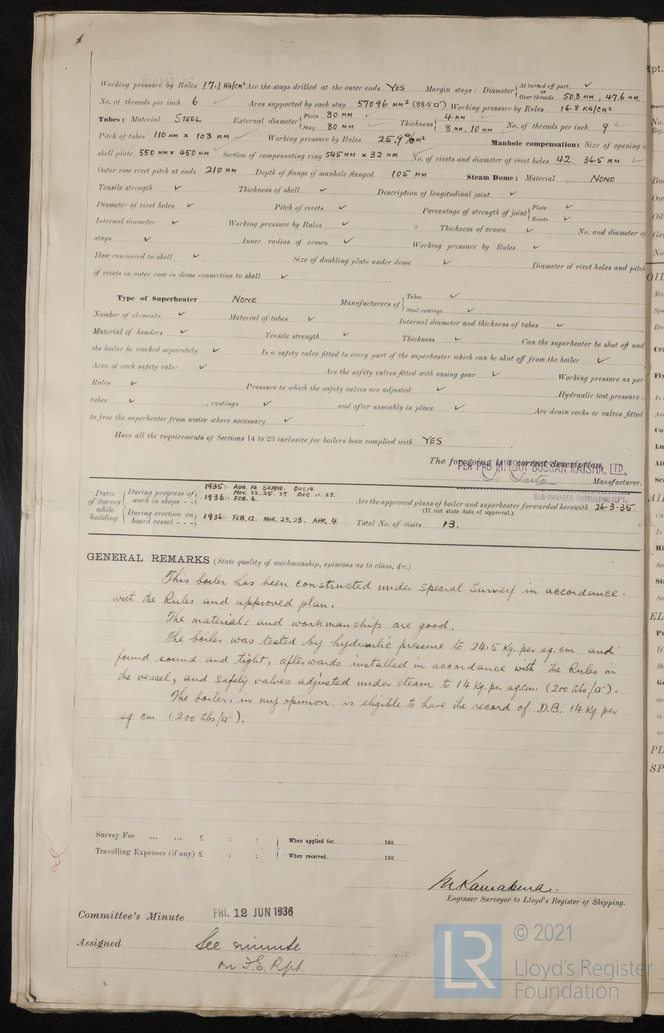 Working pressure by Rules 17.1 Kg/cm² Are the stays drilled at the outer ends YES Margin stays: Diameter { At turned off part, ✓ or Over threads 50.8 MM, 47.6 MM
No. of threads per inch 6 ✓ Area supported by each stay 57096 MM² (88.5 □") Working pressure by Rules 16.8 KG/CM²
Tubes: Material STEEL External diameter { Plain 80 MM Stay 80 MM Thickness { 4 MM 8 MM, 10 MM No. of threads per inch 9 ✓
Pitch of tubes 110 MM × 108 MM Working pressure by Rules 25.9 KG/CM² Manhole compensation: Size of opening in
shell plate 550 MM × 450 MM Section of compensating ring 545 MM × 32 MM No. of rivets and diameter of rivet holes 42 36.5 MM
Outer row rivet pitch at ends 210 MM Depth of flange if manhole flanged 105 MM Steam Dome: Material NONE
Tensile strength ✓ Thickness of shell ✓ Description of longitudinal joint ✓
Diameter of rivet holes ✓ Pitch of rivets ✓ Percentage of strength of joint { Plate ✓ Rivets ✓
Internal diameter ✓ Working pressure by Rules ✓ Thickness of crown ✓ No. and diameter of
stays ✓ Inner radius of crown ✓ Working pressure by Rules ✓
How connected to shell ✓ Size of doubling plate under dome ✓ Diameter of rivet holes and pitch
of rivets in outer row in dome connection to shell ✓
Type of Superheater NONE Manufacturers of { Tubes ✓ Steel castings ✓
Number of elements ✓ Material of tubes ✓ Internal diameter and thickness of tubes ✓
Material of headers ✓ Tensile strength ✓ Thickness ✓ Can the superheater be shut off and
the boiler be worked separately ✓ Is a safety valve fitted to every part of the superheater which can be shut off from the boiler ✓
Area of each safety valve ✓ Are the safety valves fitted with easing gear ✓ Working pressure as per
Rules ✓ Pressure to which the safety valves are adjusted ✓ Hydraulic test pressure:
tubes ✓ , castings ✓ and after assembly in place ✓ Are drain cocks or valves fitted
to free the superheater from water where necessary ✓
Have all the requirements of Sections 14 to 23 inclusive for boilers been complied with YES
The foregoing is a correct description,
PER PRO MITSUI BUSSAN KAISHA, LTD.
Manufacturer.
SUB-MANAGER SHIPBUILDING DEPT.
Dates of Survey while building { During progress of work in shops - - { 1935:- AUG. 14. SEPT. 10. OCT. 14 NOV. 22. 25. 27 DEC. 11. 27. 1936:- FEB. 6. Are the approved plans of boiler and superheater forwarded herewith 26-3-35.
(If not state date of approval.)
During erection on board vessel - - - } 1936:- FEB. 12. MAR. 23, 28. APR. 4 Total No. of visits 13.
GENERAL REMARKS (State quality of workmanship, opinions as to class, &c.)
This boiler has been constructed under Special Survey in accordance
with the Rules and approved plan.
The materials and workmanship are good.
The boiler was tested by hydraulic pressure to 24.5 Kg. per sq. cm and
found sound and tight, afterwards installed in accordance with the Rules in
the vessel, and safety valves adjusted under steam to 14 Kg. per sq. cm. (200 lbs/□").
The boiler, in my opinion, is eligible to have the record of D.B. 14 Kg. per
sq. cm (200 lbs/□").
Survey Fee ... ... £ : : When applied for, 192
Travelling Expenses (if any) £ : : When received, 192
Engineer Surveyor to Lloyd's Register of Shipping.
Committee's Minute FRI. 12 JUN 1936
Assigned See minute
on F.E. Rpt.
LR
© 2021
Lloyd's Register
Foundation